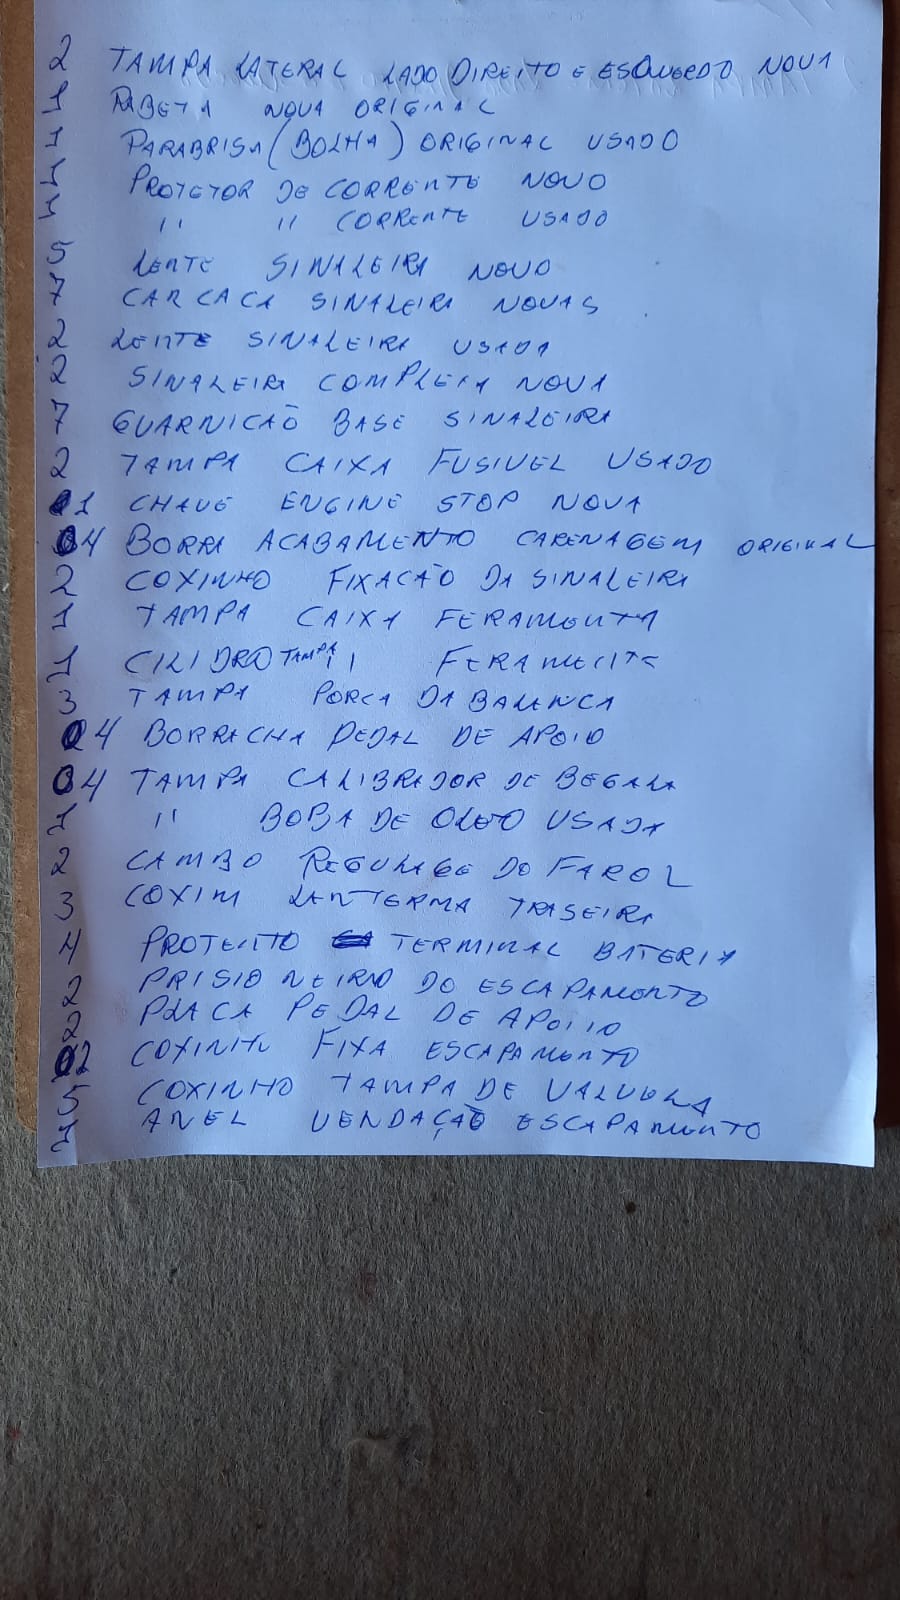 2 TAMPA LATERAL LADO DIREITO E ESQUERDO NOVA
1 RABETA NOVA ORIGINAL
1 PARABRISA (BOLHA) ORIGINAL USADO
1 PROTETOR DE CORRENTE NOVO
1 " " CORRENTE USADO
5 LENTE SINALEIRA NOVO
7 CARCACA SINALEIRA NOVAS
2 LENTE SINALEIRA USADA
2 SINALEIRA COMPLETA NOVA
7 GUARNICÃO BASE SINALEIRA
2 TAMPA CAIXA FUSIVEL USADO
1 CHAVE ENGINE STOP NOVA
04 BORRA ACABAMENTO CARENAGEM ORIGINAL
2 COXINHO FIXACÃO DA SINALEIRA
1 TAMPA CAIXA FERAMENTA
1 CILIDRO TAMPA " FERAMENTE
3 TAMPA PORCA DA BALENCA
04 BORRACHA PEDAL DE APOIO
04 TAMPA CALIBRADOR DE BEGALA
1 " BOBA DE OLEO USADA
2 CAMBO REGULAGE DO FAROL
3 COXIM LANTERMA TRASEIRA
4 PROTEITO TERMINAL BATERIA
2 PRISIONEIRO DO ESCAPAMENTO
2 PLACA PEDAL DE APOIIO
02 COXINH FIXA ESCAPAMENTO
5 COXINHO TAMPA DE VALVULA
1 ANEL VENDAÇÃO ESCAPAMENTO